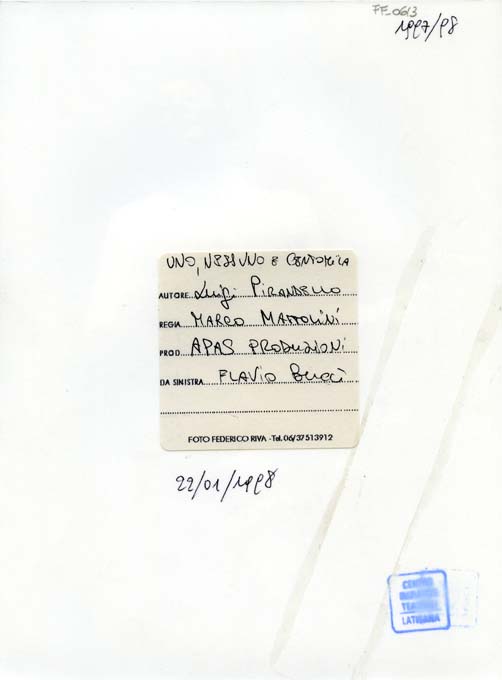 FF_0613
1997/98
UNO, NESSUNO E CENTOMILA
AUTORE Luigi PIRANDELLO
REGIA MARCO MATTOLINI
PROD. APAS PRODUZIONI
DA SINISTRA FLAVIO BUCCI
FOTO FEDERICO RIVA - Tel. 06/37513912
22/01/1998
CENTRO
LATISANA